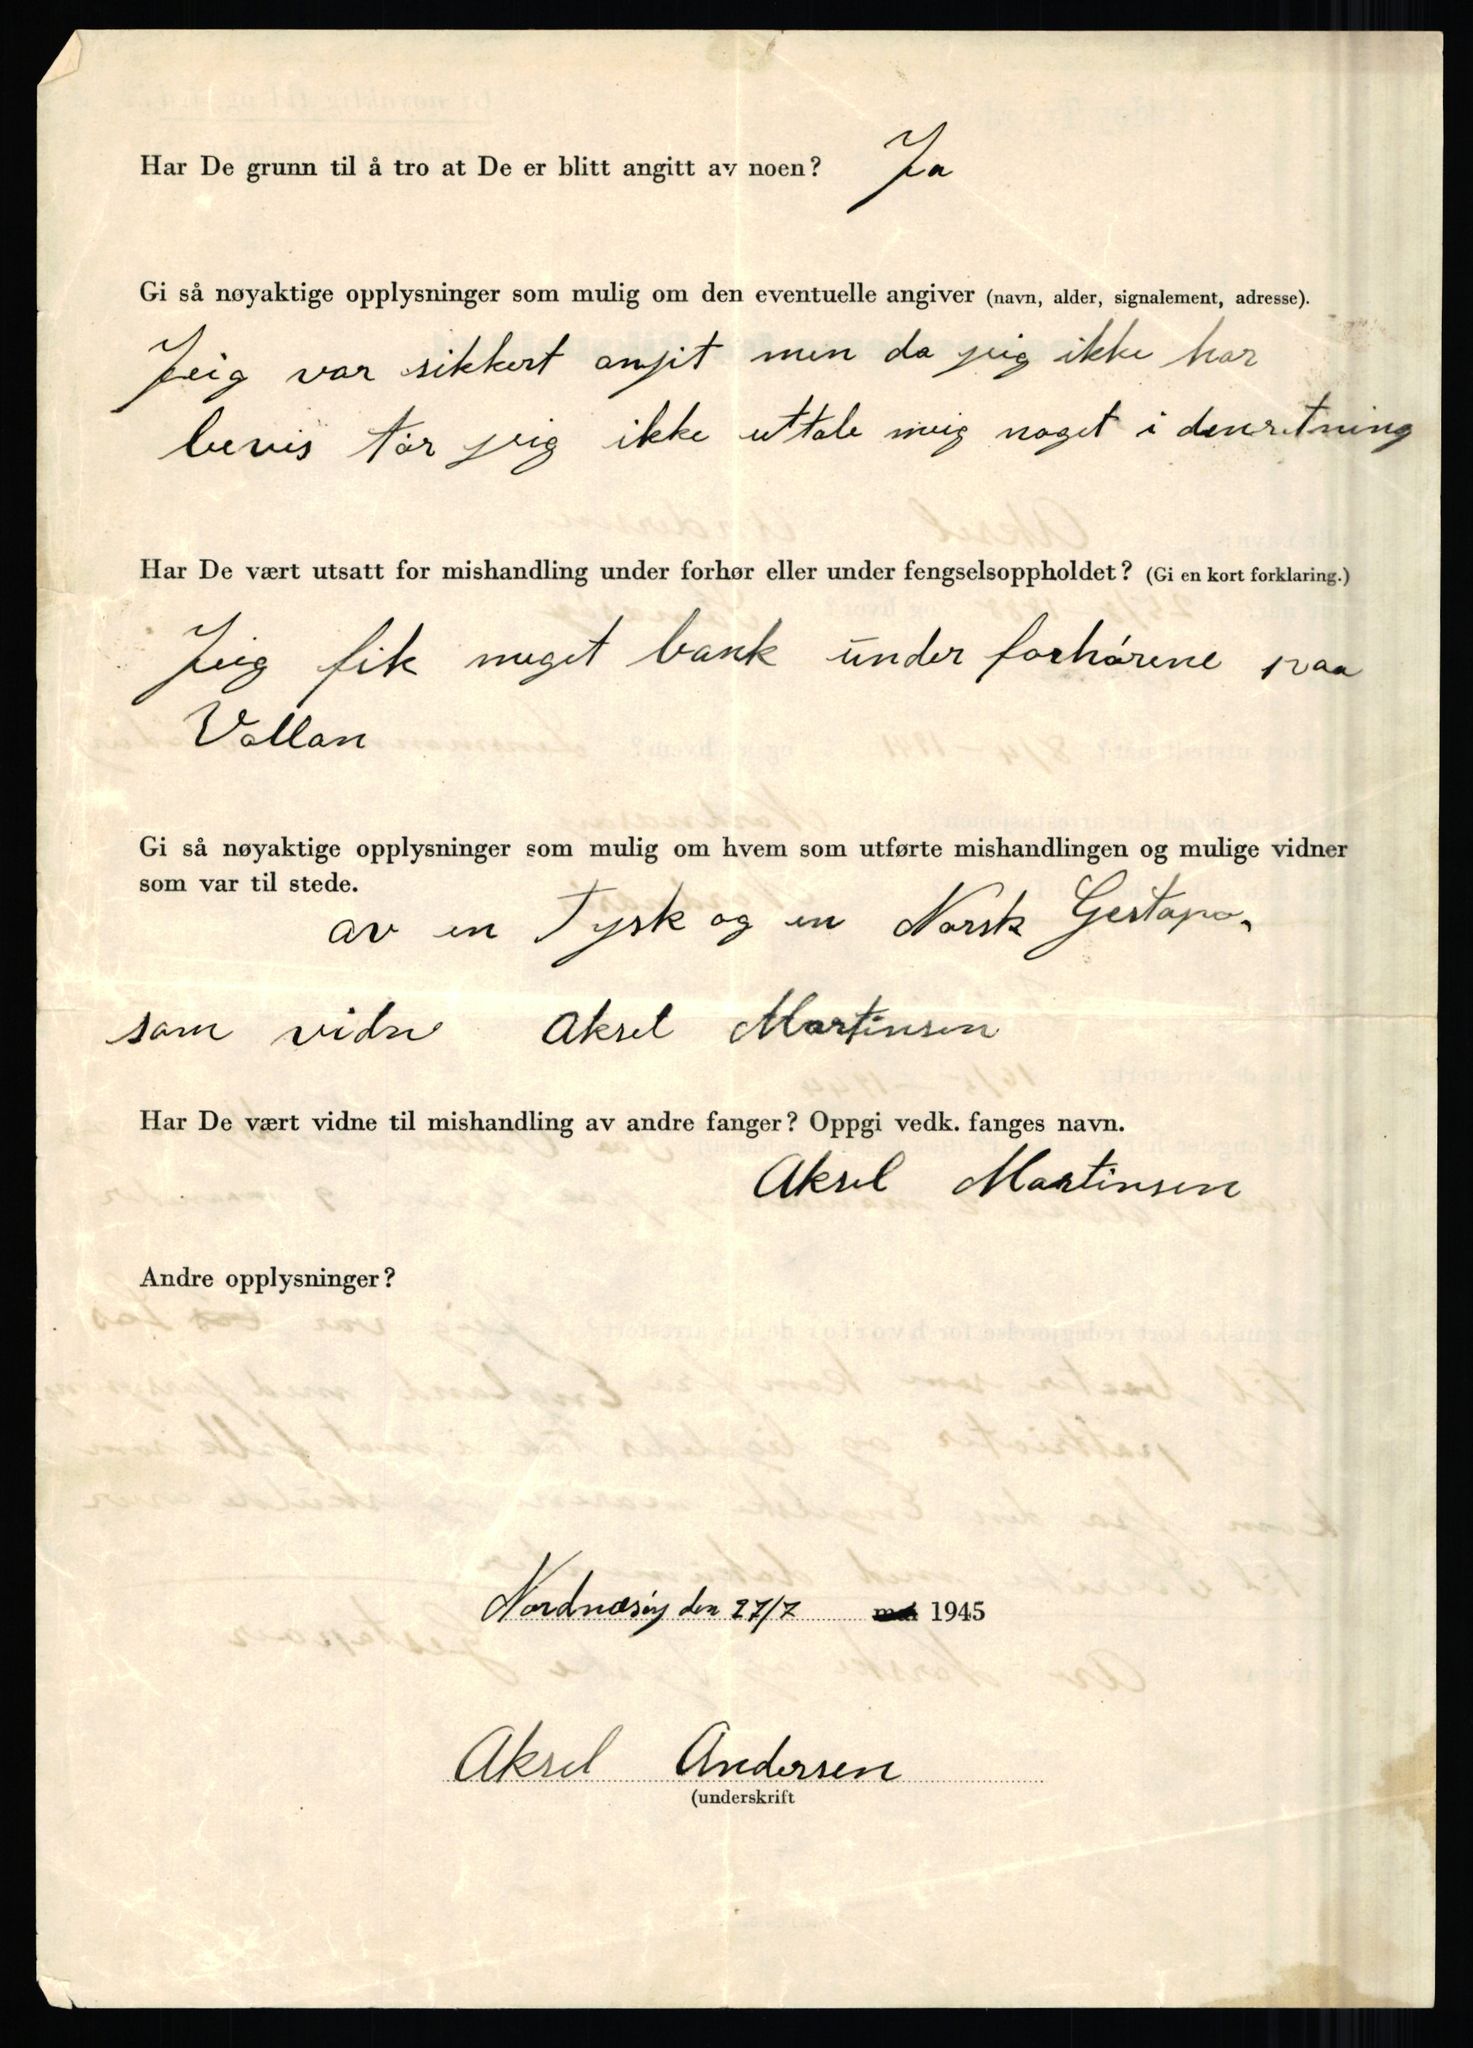 Har De grunn til å tro at De er blitt angitt av noen? Ja
Gi så nøyaktige opplysninger som mulig om den eventuelle angiver (navn, alder, signalement, adresse).
Jeig var sikkert anjit men da jeig ikke har
bevis tør jeig ikke uttale meig noget i denretning
Har De vært utsatt for mishandling under forhør eller under fengselsoppholdet? (Gi en kort forklaring.)
Jeig fik meget bank under forhørene paa
Vollan
Gi så nøyaktige opplysninger som mulig om hvem som utførte mishandlingen og mulige vidner
som var til stede.
av en Tysk og en Norsk Gestapo.
som vidne Aksel Martinsen
Har De vært vidne til mishandling av andre fanger? Oppgi vedk. fanges navn.
Aksel Martinsen
Andre opplysninger?
Nordnæsøy den 27/7 1945
Aksel Andersen
(underskrift